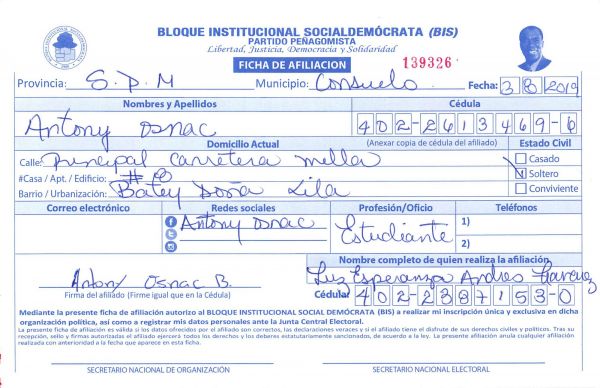 BLOQUE INSTITUCIONAL SOCIALDEMÓCRATA (BIS)
PARTIDO PEÑAGOMISTA
Libertad, Justicia, Democracia y Solidaridad
FICHA DE AFILIACION 139326
Provincia: S.P.M Municipio: Consuelo Fecha: 3/8/2019
Nombres y Apellidos Cédula
Antony Osnac 402-2613469-6
Domicilio Actual (Anexar copia de cédula del afiliado) Estado Civil
Calle: Principal Carretera mella Casado
#Casa / Apt. / Edificio: #10 Soltero
Barrio / Urbanización: Batey Doña Lila Conviviente
Correo electrónico Redes sociales Profesión/Oficio Teléfonos
Antony Osnac Estudiante 1)
2)
Nombre completo de quien realiza la afiliación
Antony Osnac B. Luz Esperanza Andres
Firma del afiliado (Firme igual que en la Cédula) Cédula 402-2387153-0
Mediante la presente ficha de afiliación autorizo al BLOQUE INSTITUCIONAL SOCIAL DEMÓCRATA (BIS) a realizar mi inscripción única y exclusiva en dicha
organización política, así como a registrar mis datos personales ante la Junta Central Electoral.
La presente ficha de afiliación es válida si los datos ofrecidos por el afiliado son correctos, las declaraciones veraces y si el afiliado tiene el disfrute de sus derechos civiles y políticos. Tras su
recepción, sello y firmas autorizadas el afiliado ejercerá todos los derechos y los deberes estatutariamente sancionados, de acuerdo a la ley. La presente afiliación anula cualquier afiliación
realizada con anterioridad a la fecha que aparece en esta ficha.
SECRETARIO NACIONAL DE ORGANIZACIÓN SECRETARIO NACIONAL ELECTORAL